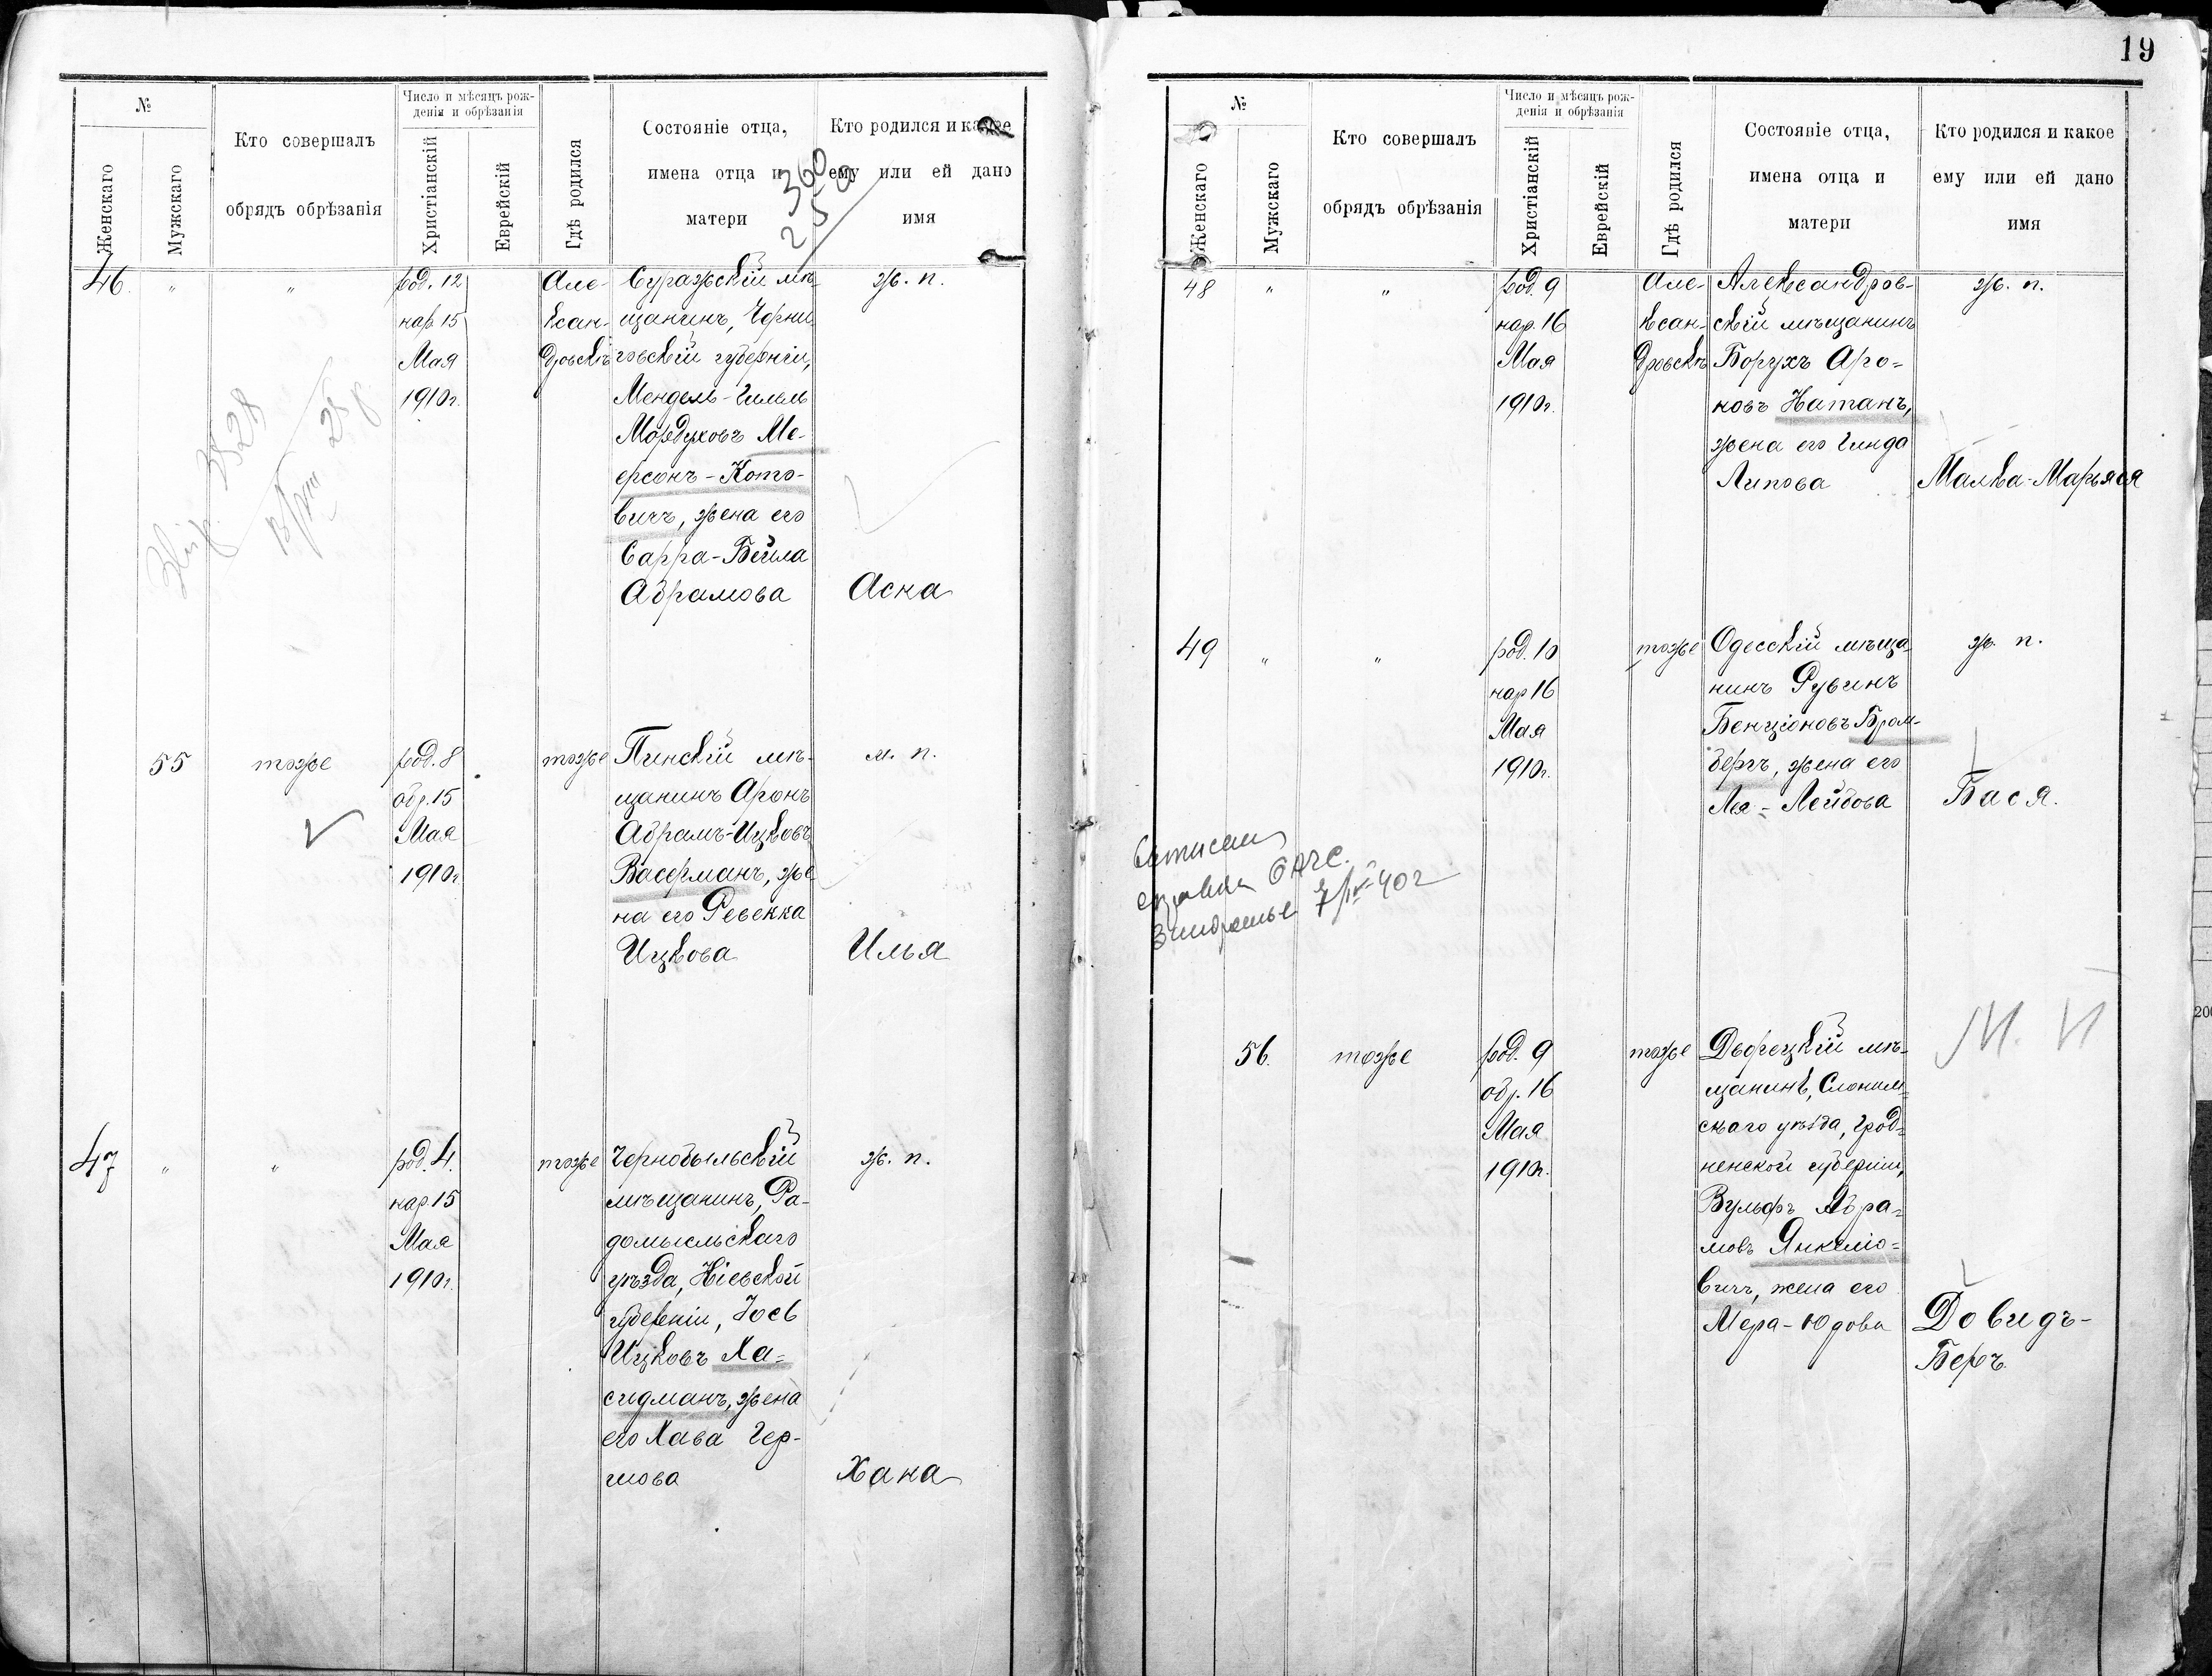 19
№
Женскаго
Мужскаго
Кто совершалъ
обрядъ обрѣзанія
Число и мѣсяцъ рож-
денія и обрѣзанія
Христіанскій
Еврейскій
Гдѣ родился
Состояніе отца,
имена отца и
матери
Кто родился и какое
ему или ей дано
имя
360
250
46.
"
"
род. 12
нар. 15
Мая
1910г.
Але-
ксан-
дровскѣ
Суражскій мѣ-
щанинъ, Черни-
говскій губерніи,
Мендель-Гилель
Мордуховъ Ме-
ерсонъ-Кото-
вичъ, жена его
Сарра-Бейла
Абрамова
ж. п.
Асна
3528
55
тоже
род. 8
обр. 15
Мая
1910г
тоже
Пинскій мѣ-
щанинъ Аронъ
Абрамъ-Ицковъ
Васерманъ, же
на его Ревекка
Ицкова
м. п.
Илья
47
"
"
род. 4.
нар. 15
Мая
1910г.
тоже
Чернобыльскій
мѣщанинъ, Ра-
домысльскаго
уѣзда, Кіевской
губерніи, Іось
Ицковъ Ха-
сидманъ, жена
его Хава Гер-
шова
ж. п.
Хана
№
Женскаго
Мужскаго
Кто совершалъ
обрядъ обрѣзанія
Число и мѣсяцъ рож-
денія и обрѣзанія
Христіанскій
Еврейскій
Гдѣ родился
Состояніе отца,
имена отца и
матери
Кто родился и какое
ему или ей дано
имя
48
"
"
род. 9
нар. 16
Мая
1910г.
Але-
ксан-
дровскѣ
Александров-
скій мѣщанинъ
Борухъ Аро-
новъ Натанъ,
жена его Гинда
Липова
ж. п.
Малка-Марьяся
49
"
"
род. 10
нар 16
Мая
1910г.
тоже
Одесскій мѣща-
нинъ Рувинъ
Бенціоновъ Бром-
бергъ, жена его
Лея-Лейбова
ж. п.
Бася.
ЗАГС.
40г
56.
тоже
род. 9
обр. 16
Мая
1910г.
тоже
Дворецкій мѣ-
щанинъ, Слоним-
скаго уѣзда, Грод-
ненской губерніи,
Вульфъ Абра-
мовъ Янкелю-
вичъ, жена его
Мера-Юдова
М. П
Довидъ-
Беръ.